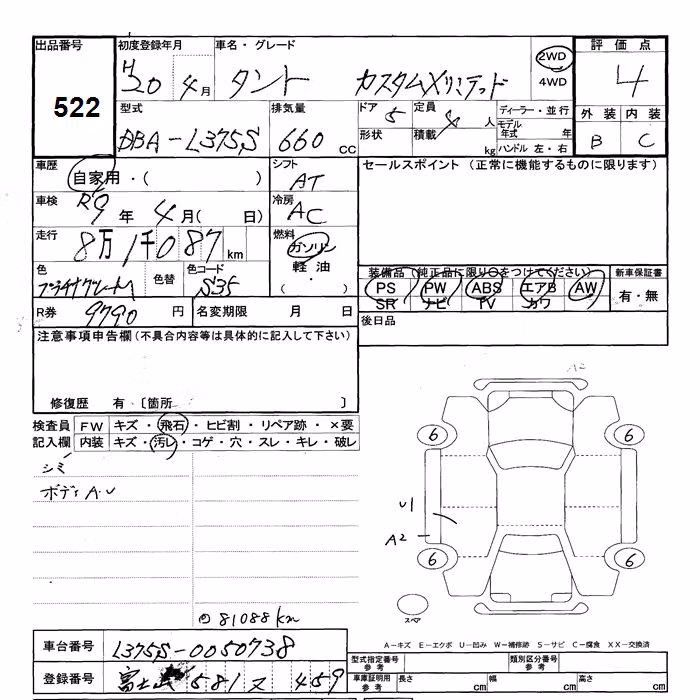 出品番号 初度登録年月 車名・グレード 評価点
522
H20 4月 タント カスタムXリミテッド 2WD 4WD 4
型式 排気量 ドア 5 定員 4人 ディーラー・並行 外装 内装
DBA-L375S 660cc 形状 積載 kg モデル年式 年 B C
ハンドル 左・右
車歴 自家用・( ) シフト AT セールスポイント (正常に機能するものに限ります)
車検 R 9年 4月( 日) 冷房 AC
走行 8万1千087km 燃料 ガソリン
軽油・( )
色 色替 色コード S35
装備品(純正品に限り○をつけてください) 新車保証書
PS PW ABS エアB AW 有・無
SR ナビ TV カワ
R券 9790円 名変期限 月 日 後日品
注意事項申告欄(不具合内容等は具体的に記入して下さい)
修復歴 有〔箇所 〕
検査員 FW キズ・飛石・ヒビ割・リペア跡・×要
記入欄 内装 キズ・汚レ・コゲ・穴・スレ・キレ・破レ
シミ
ボディA.U
A2
6 6
U1
A2
6 6
スペア
81088km
A-キズ E-エクボ U-凹み W-補修跡 S-サビ C-腐食 XX-交換済
車台番号 L375S-0050738
型式指定番号 参考 類別区分番号 参考
登録番号 富士山 581 ス 459
車庫証明用 参考 長さ cm 幅 cm 高さ cm